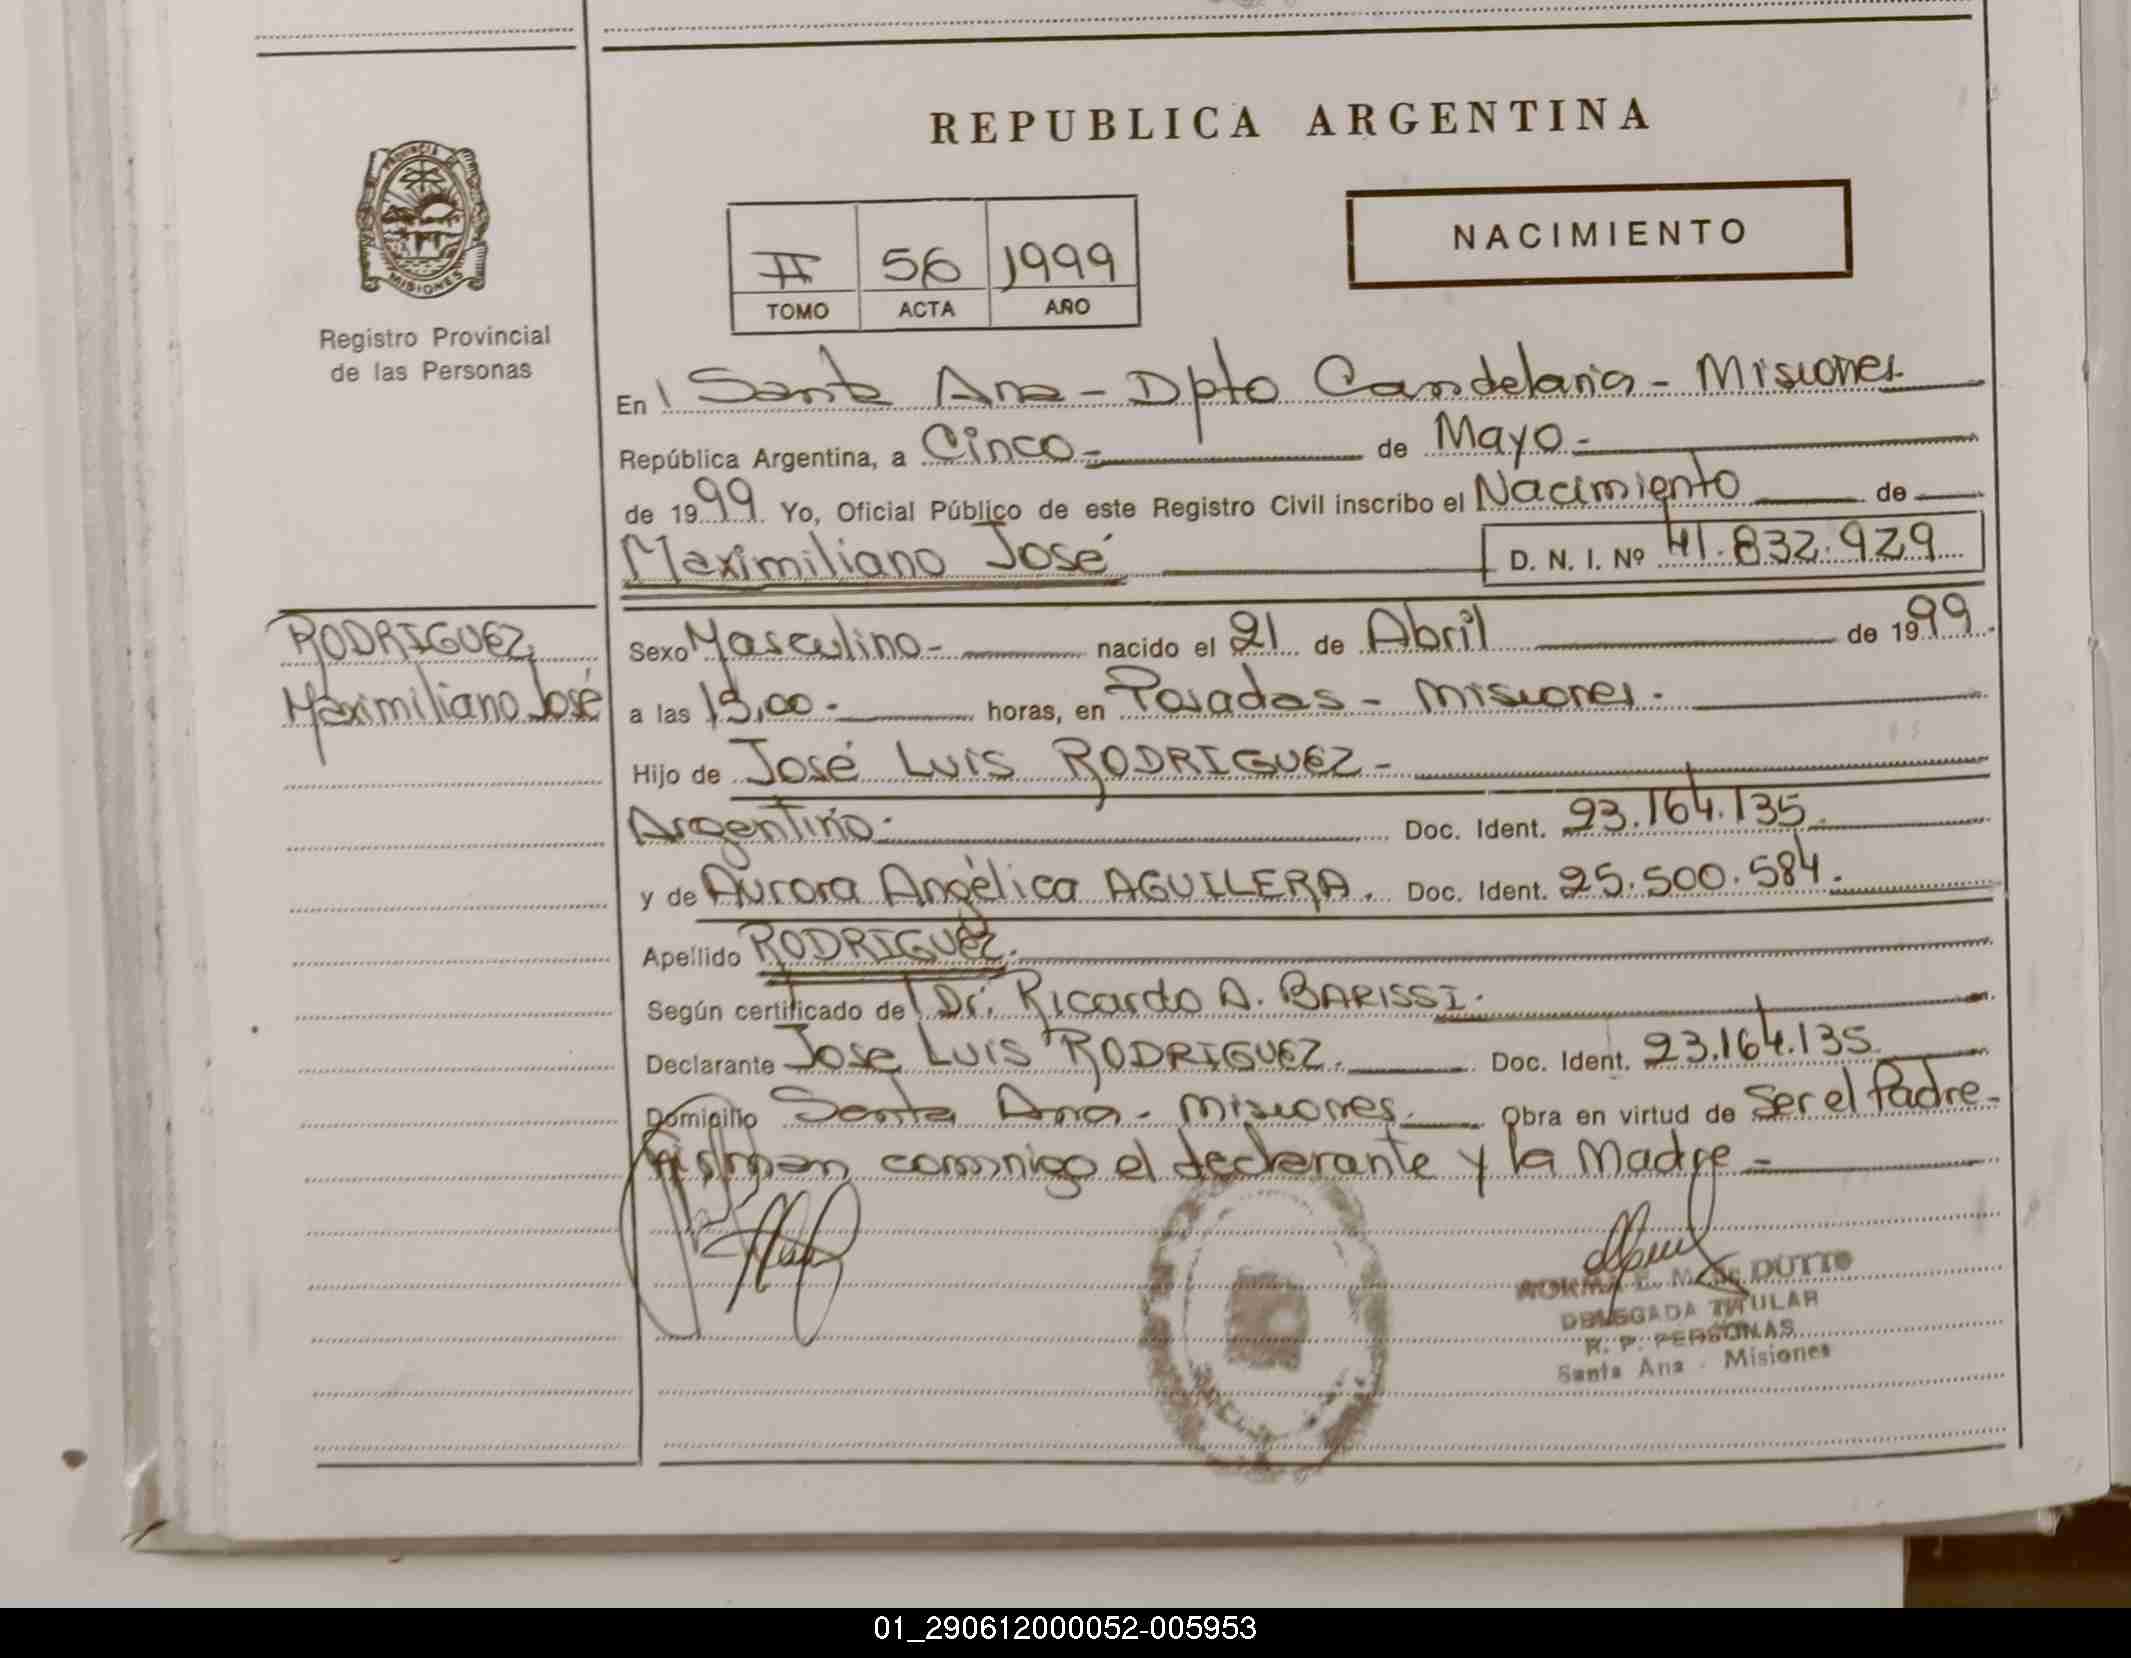 REPUBLICA ARGENTINA
PROVINCIA DE
MISIONES
Registro Provincial
de las Personas
NACIMIENTO
II 56 1999
TOMO ACTA AÑO
En Santa Ana - Dpto Candelaria - Misiones
República Argentina, a Cinco - de Mayo -
de 1999 Yo, Oficial Público de este Registro Civil inscribo el Nacimiento de
Maximiliano José D. N. I. Nº 41.832.929
RODRIGUEZ,
Maximiliano José
Sexo Masculino - nacido el 21 de Abril de 1999.
a las 13,00 - horas, en Posadas - Misiones.
Hijo de José Luis RODRIGUEZ -
Argentino - Doc. Ident. 23.164.135.
y de Aurora Angélica AGUILERA. Doc. Ident. 25.500.584.
Apellido RODRIGUEZ.
Según certificado de Dr. Ricardo A. BARISSI.
Declarante Jose Luis RODRIGUEZ. Doc. Ident. 23.164.135
Domicilio Santa Ana - Misiones. Obra en virtud de Ser el Padre -
Firman conmigo el declarante y la Madre -
NORMA E. M. DE DUTTO
DELEGADA TITULAR
R. P. PERSONAS
Santa Ana - Misiones
01_290612000052-005953